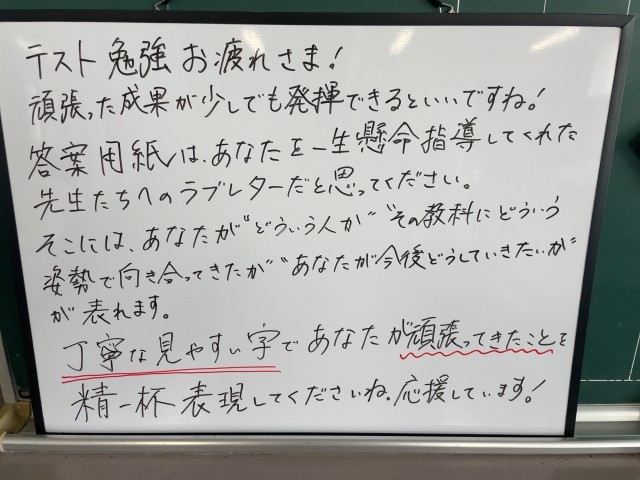 テスト勉強お疲れさま!
頑張った成果が少しでも発揮できるといいですね!
答案用紙は、あなたを一生懸命指導してくれた
先生たちへのラブレターだと思ってください。
そこには、あなたが“どういう人か”“その教科にどういう
姿勢で向き合ってきたか”“あなたが今後どうしていきたいか”
が表れます。
丁寧な見やすい字であなたが頑張ってきたことを
精一杯表現してくださいね。応援しています!